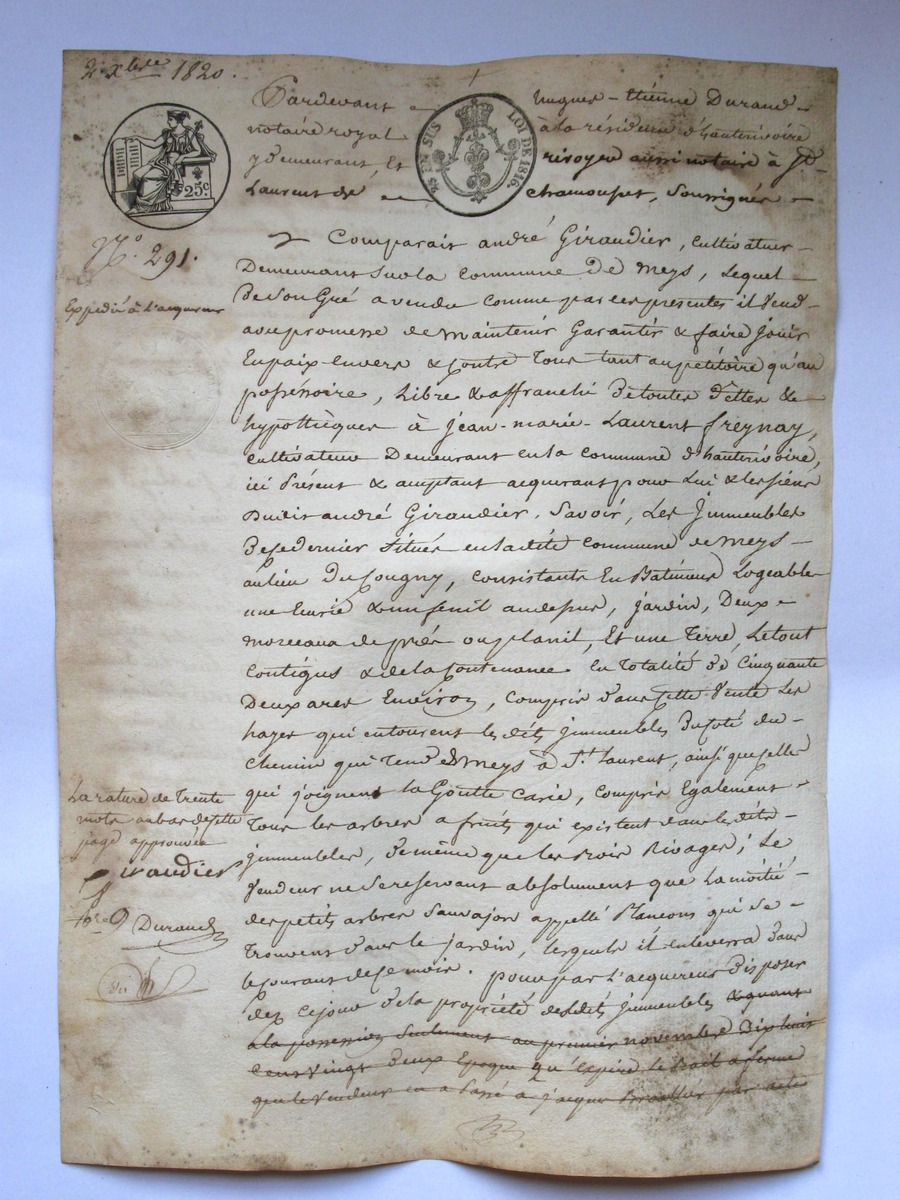 2 Xbre 1820.
Pardevant Hugues-Etienne Durand
notaire royal à la résidence d'hauterivoire
y demeurant, Et risoyer aussi notaire à St
Laurent de chamousset, soussignés
25c
25 EN SUS LOI DE 1816.
N° 291.
Expédié à l'acquereur
Comparait andré Giraudier, cultivateur
Demeurant sur la commune De meys, Lequel
De Son Gué a vendu comme par ces présentes il Vend
avec promesse de maintenir Garantir & faire Jouir
En paix Envers & Contre Tous tant au petitoire qu'au
possessoire, Libre & affranchi De toutes Dettes &
hypothèques à Jean-marie-Laurent freynay,
cultivateur Demeurant en la commune d'hauterivoire,
ici Présent & acceptant acquerant pour Lui & les siens
Dudit andré Giraudier, Savoir, Les Jmmeubles
De ce dernier Situés en la dite commune de Meys
au lieu Du Cougny, consistants En Batiments Logeables
une Ecurie & un fenil au dessus, jardin, Deux
morceaux de près ou planil, Et une Terre, Le tout
Contigus & de la Contenance En Totalité de Cinquante
Deux ares Environ, compris dans Cette Vente Les
hayes qui entourent les dits jmmeubles Du Coté du
Chemin qui Tend de Meys à St. Laurent, ainsi que celle
qui joignent la Goutte Carie, compris Egalement
Tous les arbres a fruits qui existent dans les dits
jmmeubles, de même que les trois Rivages; Le
Vendeur ne Se reservant absolument que La moitié
des petits arbres Sauvajons appellé Plançons qui Se
Trouvent dans le jardin, lesquels il enlevera dans
le Courant de Ce mois. pour par L'acquereur Disposer
dez Ce jour de la propriété desdits Jmmeubles & quant
a la possession Seulement au premier novembre Dix huit
Cent Vingt Deux Epoque qu'Expire le Bail a ferme
que le Vendeur en a Passé à jacque par acte
La rature de Trente
mots au bas de cette
page approuvée
Giraudier
Durand